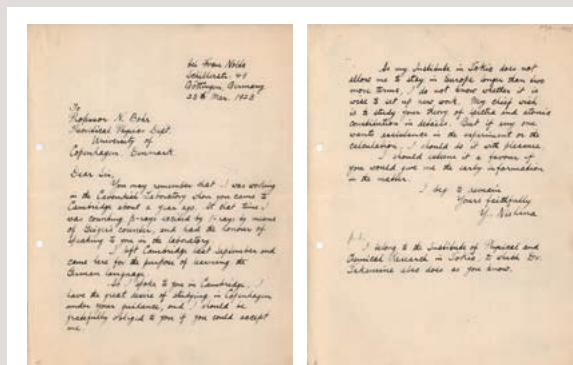 bei Frau Nolde
Schillerstr. 49
Göttingen, Germany
25th Mar. 1923
To
Professor N. Bohr
Theoretical Physics Dept.
University of
Copenhagen, Denmark
Dear Sir,
You may remember that I was working
in the Cavendish Laboratory when you came to
Cambridge about a year ago. At that time I
was counting β-rays excited by γ-rays by means
of Geiger's counter, and had the honour of
speaking to you in the laboratory.
I left Cambridge last September and
came here for the purpose of learning the
German language.
As I spoke to you in Cambridge, I
have the great desire of studying in Copenhagen
under your guidance, and I should be
gratefully obliged to you if you could accept
me.
As my Institute in Tokio does not
allow me to stay in Europe longer than two
more terms, I do not know whether it is
wise to set up new work. My chief wish
is to study your theory of spectra and atomic
constitution in details. But if any one
wants assistance in the experiment or the
calculation, I should do it with pleasure.
I should esteem it a favour if
you would give me the early information
in the matter.
I beg to remain
Yours faithfully
Y. Nishina
p.s.
I belong to the Institute of Physical and
Chemical Research in Tokio, to which Dr.
Takamine also does as you know.